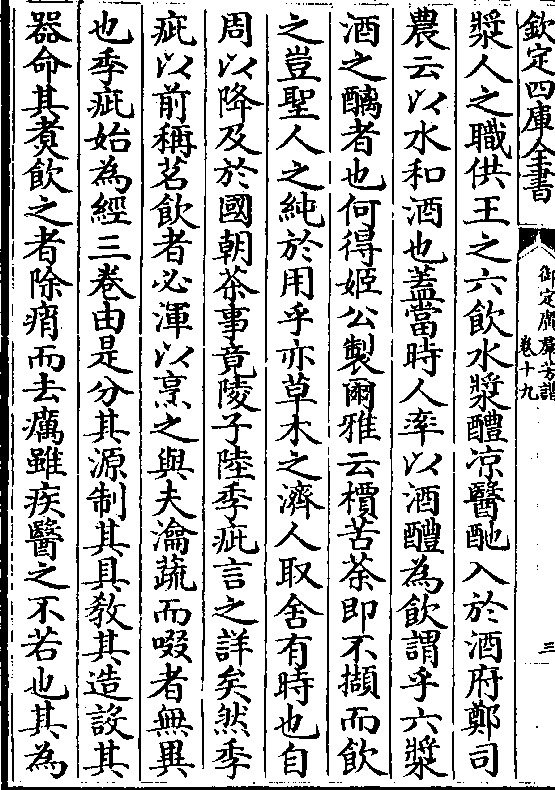 欽定四庫全書
御定廣羣芳譜
卷十九
三
漿人之職供王之六飲水漿醴凉醫酏入於酒府鄭司
農云以水和酒也蓋當時人率以酒醴為飲謂乎六漿
酒之醨者也何得姬公製爾雅云檟苦荼即不擷而飲
之豈聖人之純於用乎亦草木之濟人取舍有時也自
周以降及於國朝茶事竟陵子陸季疵言之詳矣然季
疵以前稱茗飲者必渾以烹之與夫瀹蔬而啜者無異
也季疵始為經三卷由是分其源制其具教其造設其
器命其煑飲之者除痟而去癘雖疾醫之不若也其為